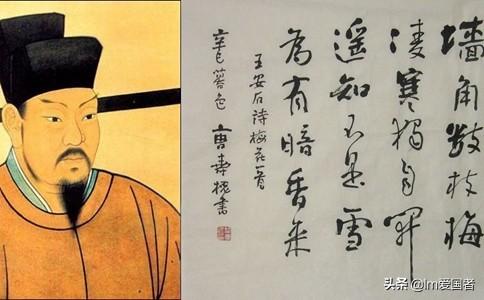 墙角数枝梅
凌寒独自開
遥知不是雪
為有暗香来
王安石诗梅花一首
辛巳
头条 @lm爱国者